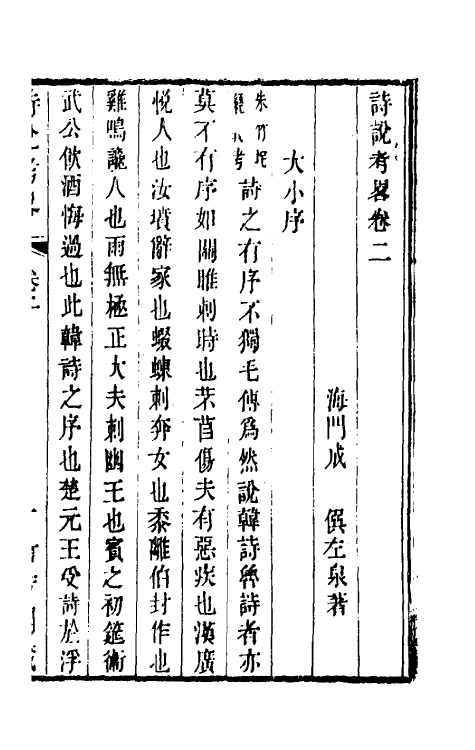 詩說考畧卷二
海門成　僎左泉著
大小序
朱竹垞
經義考
詩之有序不獨毛傳爲然說韓詩魯詩者亦
莫不有序如關雎刺時也芣苢傷夫有惡疾也漢廣
悅人也汝墳辭家也蝃蝀刺奔女也黍離伯封作也
雞鳴讒人也雨無極正大夫刺幽王也賓之初筵衛
武公飲酒悔過也此韓詩之序也楚元王受詩於浮
卷二
一